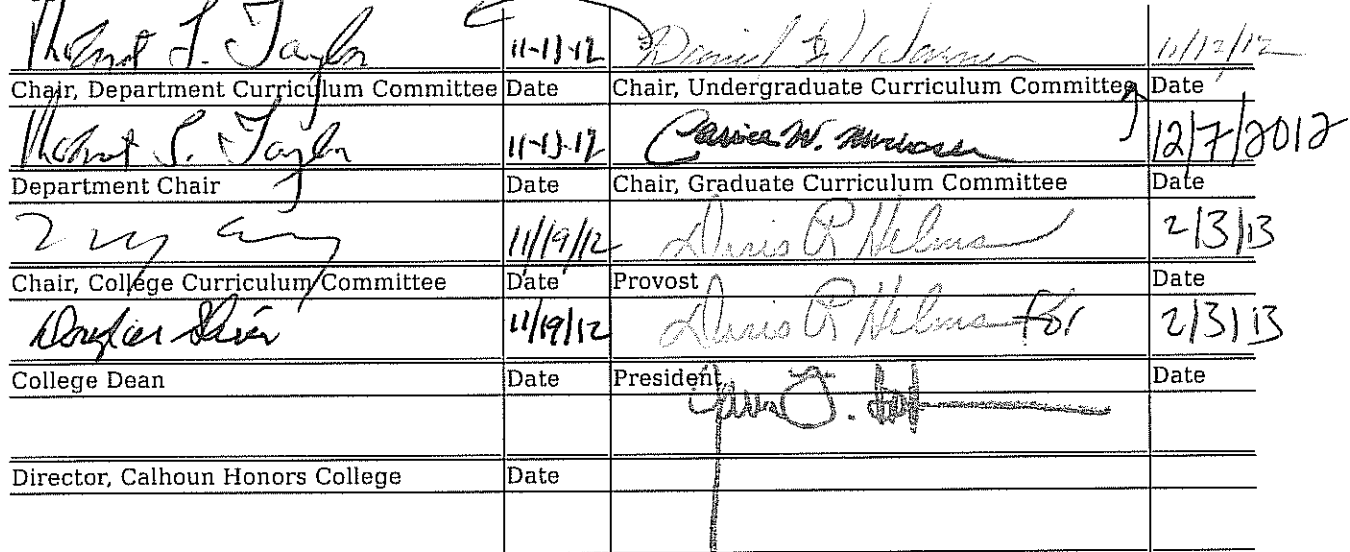 Taylor 11-13-12 Daniel 11/12/12
Chair, Department Curriculum Committee Date Chair, Undergraduate Curriculum Committee Date
Taylor 11-13-12 W. 12/7/2012
Department Chair Date Chair, Graduate Curriculum Committee Date
11/19/12 Doris R Helms 2/3/13
Chair, College Curriculum Committee Date Provost Date
11/19/12 Doris R Helms for 2/3/13
College Dean Date President Date
Director, Calhoun Honors College Date